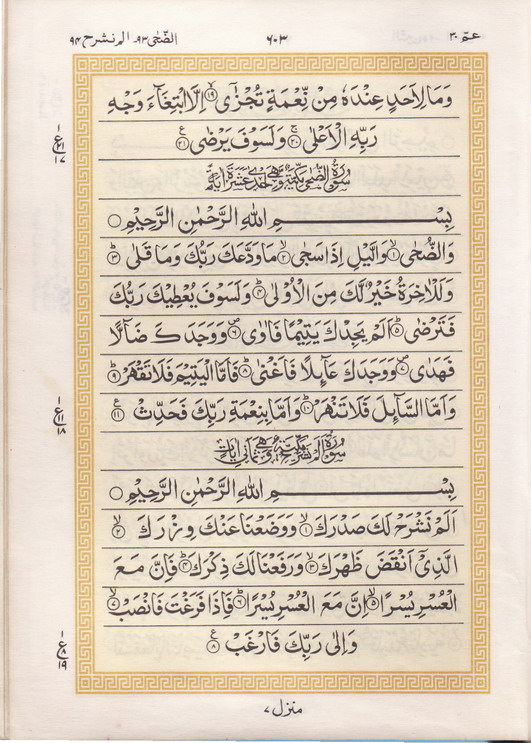 عمّ ٣٠ ٦٠٣ الضّحٰی ٩٣ـ الم نشرح ٩٤
وَمَا لِاَحَدٍ عِنْدَهٗ مِنْ نِّعْمَةٍ تُجْزٰۤى ۙ‏﴿۱۹﴾ اِلَّا ابْتِغَآءَ وَجْهِ
رَبِّهِ الْاَعْلٰى‌ۚ‏﴿۲۰﴾ وَلَسَوْفَ يَرْضٰى‏﴿۲۱﴾ ع
سُوْرَةُ الضُّحٰى مَكِّيَّةٌ وَّهِىَ اِحْدٰى عَشَرَةَ اٰيَةً
بِسْــــــــمِ اللّٰهِ الرَّحْمٰنِ الرَّحِيْمِ ○
وَالضُّحٰىۙ‏﴿۱﴾ وَالَّيْلِ اِذَا سَجٰىۙ‏﴿۲﴾ مَا وَدَّعَكَ رَبُّكَ وَمَا قَلٰىؕ‏﴿۳﴾
وَلَلْاٰخِرَةُ خَيْرٌ لَّكَ مِنَ الْاُوْلٰىؕ‏﴿۴﴾ وَلَسَوْفَ يُعْطِيْكَ رَبُّكَ
فَتَرْضٰىؕ‏﴿۵﴾ اَلَمْ يَجِدْكَ يَتِيْمًا فَاٰوٰى‏﴿۶﴾ وَوَجَدَكَ ضَآلًّا
فَهَدٰى‏﴿۷﴾ وَوَجَدَكَ عَآٮِٕلًا فَاَغْنٰىؕ‏﴿۸﴾ فَاَمَّا الْيَتِيْمَ فَلَا تَقْهَرْؕ‏﴿۹﴾
وَاَمَّا السَّآٮِٕلَ فَلَا تَنْهَرْؕ‏﴿۱۰﴾ وَاَمَّا بِنِعْمَةِ رَبِّكَ فَحَدِّثْ‏﴿۱۱﴾ ع
سُوْرَةُ اَلَمْ نَشْرَحْ مَكِّيَّةٌ وَّهِىَ ثَمَانِى اٰيَاتٍ
بِسْــــــــمِ اللّٰهِ الرَّحْمٰنِ الرَّحِيْمِ ○
اَلَمْ نَشْرَحْ لَكَ صَدْرَكَۙ‏﴿۱﴾ وَوَضَعْنَا عَنْكَ وِزْرَكَۙ‏﴿۲﴾
الَّذِىْۤ اَنْقَضَ ظَهْرَكَۙ‏﴿۳﴾ وَرَفَعْنَا لَكَ ذِكْرَكَؕ‏﴿۴﴾ فَاِنَّ مَعَ
الْعُسْرِ يُسْرًاۙ‏﴿۵﴾ اِنَّ مَعَ الْعُسْرِ يُسْرًاؕ‏﴿۶﴾ فَاِذَا فَرَغْتَ فَانْصَبْۙ‏﴿۷﴾
وَاِلٰى رَبِّكَ فَارْغَبْ‏﴿۸﴾ ع
منزل ٧
١ ع ٢١ ١٧
١ ع ١١ ١٨
١ ع ٨ ١٩